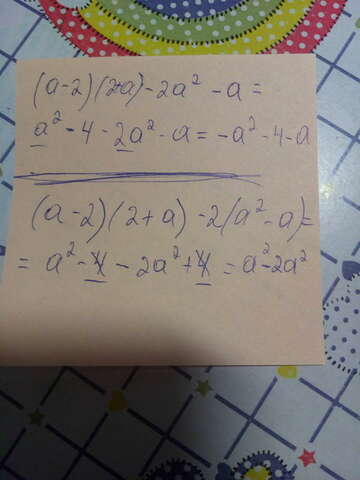 (a-2)(2+a)-2a² -a=
a²-4-2a²-a=-a²-4-a
(a-2)(2+a)-2(a²-a)=
=a²-4-2a²+4=a²-2a²